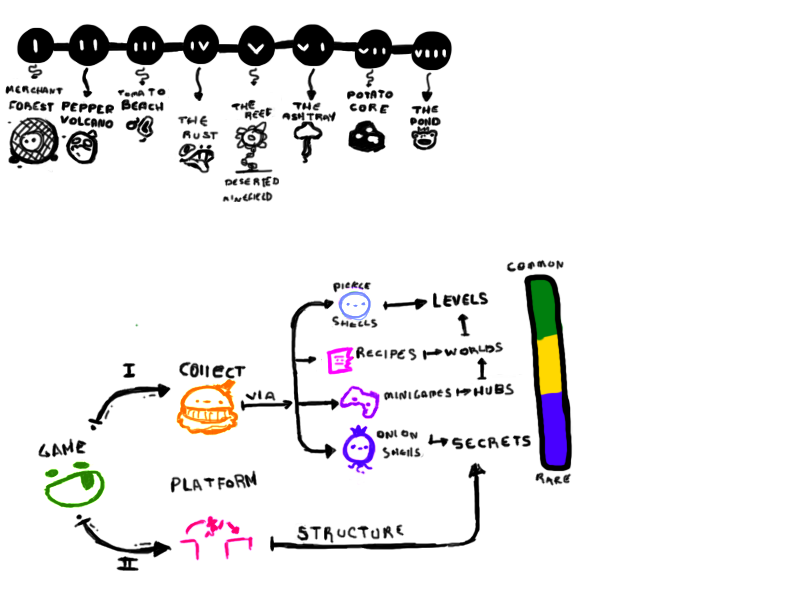 I II III IV V VI VII VIII
MERCHANT
FOREST
PEPPER
VOLCANO
TOMATO
BEACH
THE
RUST
THE
REEF
DESERTED
MINEFIELD
THE
ASHTRAY
POTATO
CORE
THE
POND
COMMON
PICKLE
SHELLS
LEVELS
I
COLLECT
VIA
RECIPES
WORLDS
MINIGAMES
HUBS
ONION
SHELLS
SECRETS
RARE
GAME
PLATFORM
STRUCTURE
II